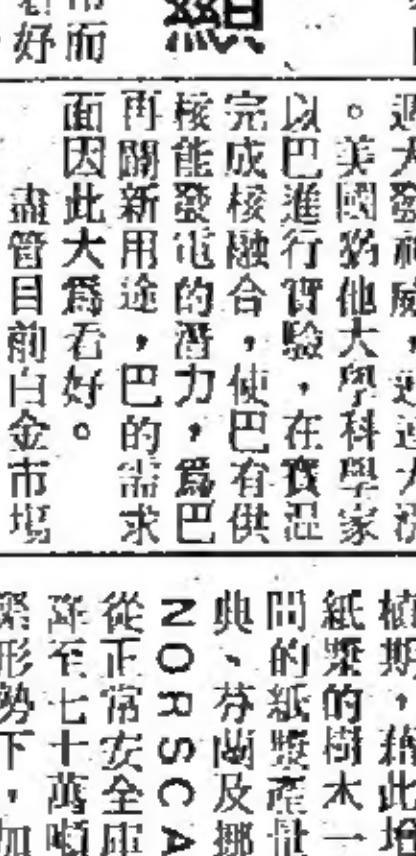 而
好
大發神威，迅速大漲
。美國猶他大學科學家
以巴進行實驗，在實溫
完成核融合，使巴有供
核能發電的潛力，爲巴
再闢新用途，巴的需求
面因此大爲看好。
盡管目前白金市場
植期，藉此培
紙漿的樹木一
間的紙漿產量
典、芬蘭及挪
NORSCA
從正常安全庫
降至七十萬噸
緊形勢下，加